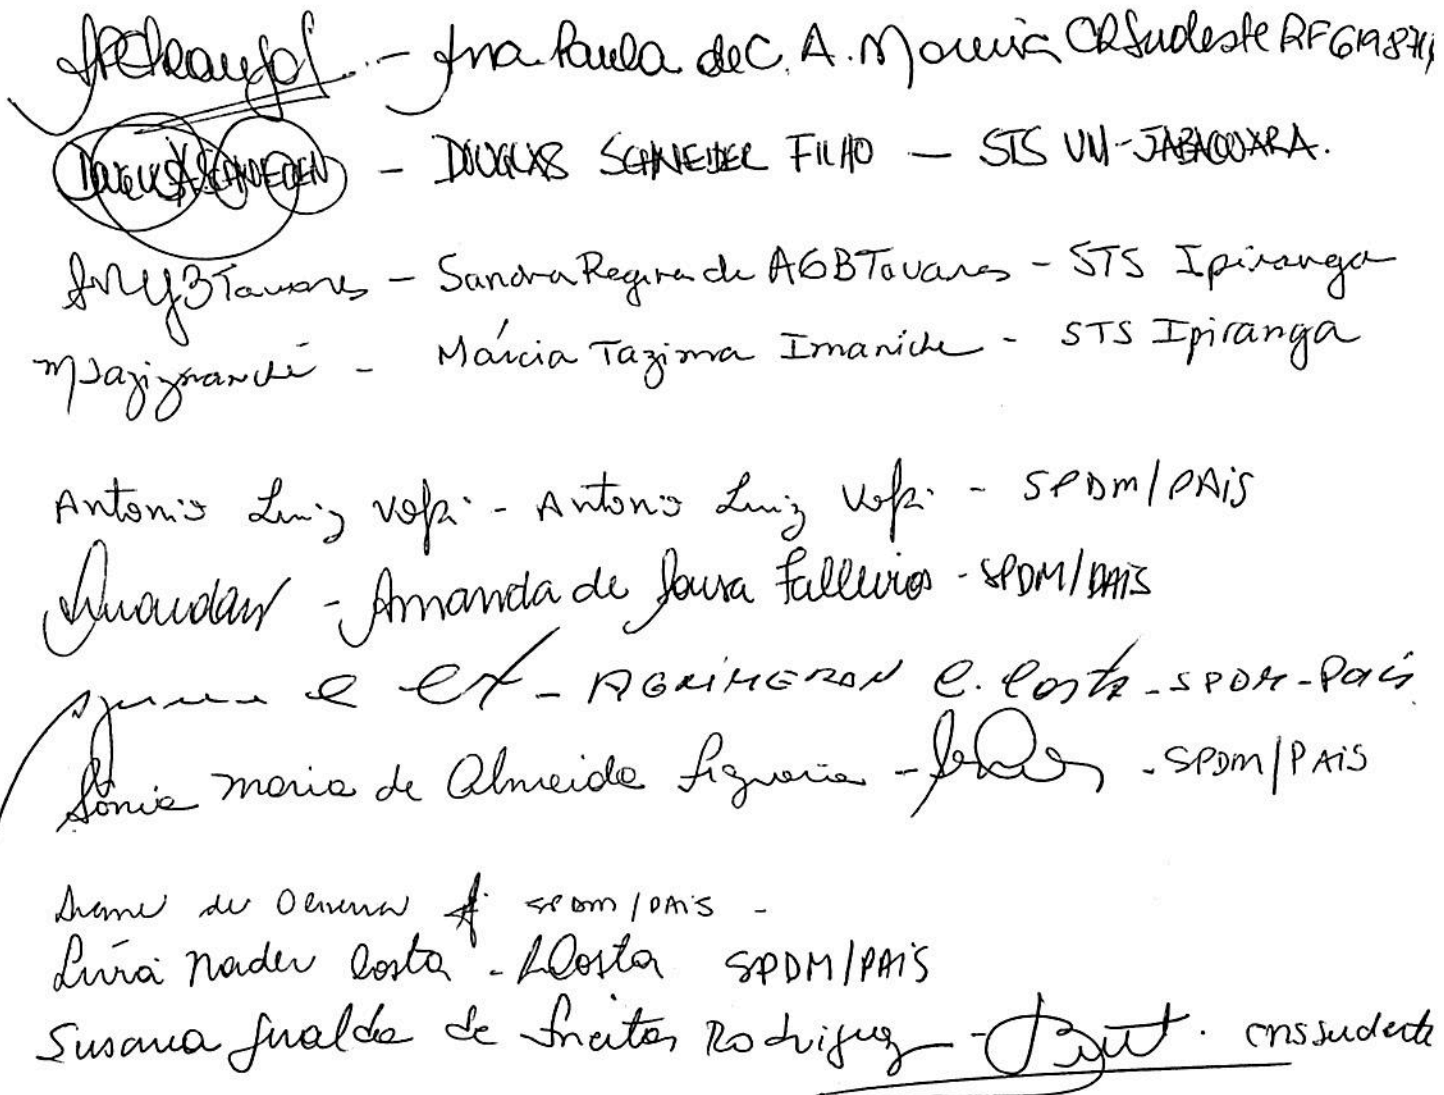 - Ana Paula de C. A. Moreira CRSudeste RF 619871
- DOUGLAS SCHNEIDER FILHO - STS VM-JABAQUARA.
Tavares - Sandra Regina de AGBTavares - STS Ipiranga
- Márcia Tazima Imanichi - STS Ipiranga
Antonio Luiz Volpi - Antonio Luiz Volpi - SPDM/PAIS
- Amanda de Sousa Falleiros - SPDM/PAIS
- AGRIMERON C. Costa - SPDM-Pais
Sônia Maria de Almeida Figueira - - SPDM/PAIS
de SPDM/PAIS -
Lívia Nader Costa - LCosta SPDM/PAIS
Susana Jualda de Freitas Rodrigues - . CRSSudeste